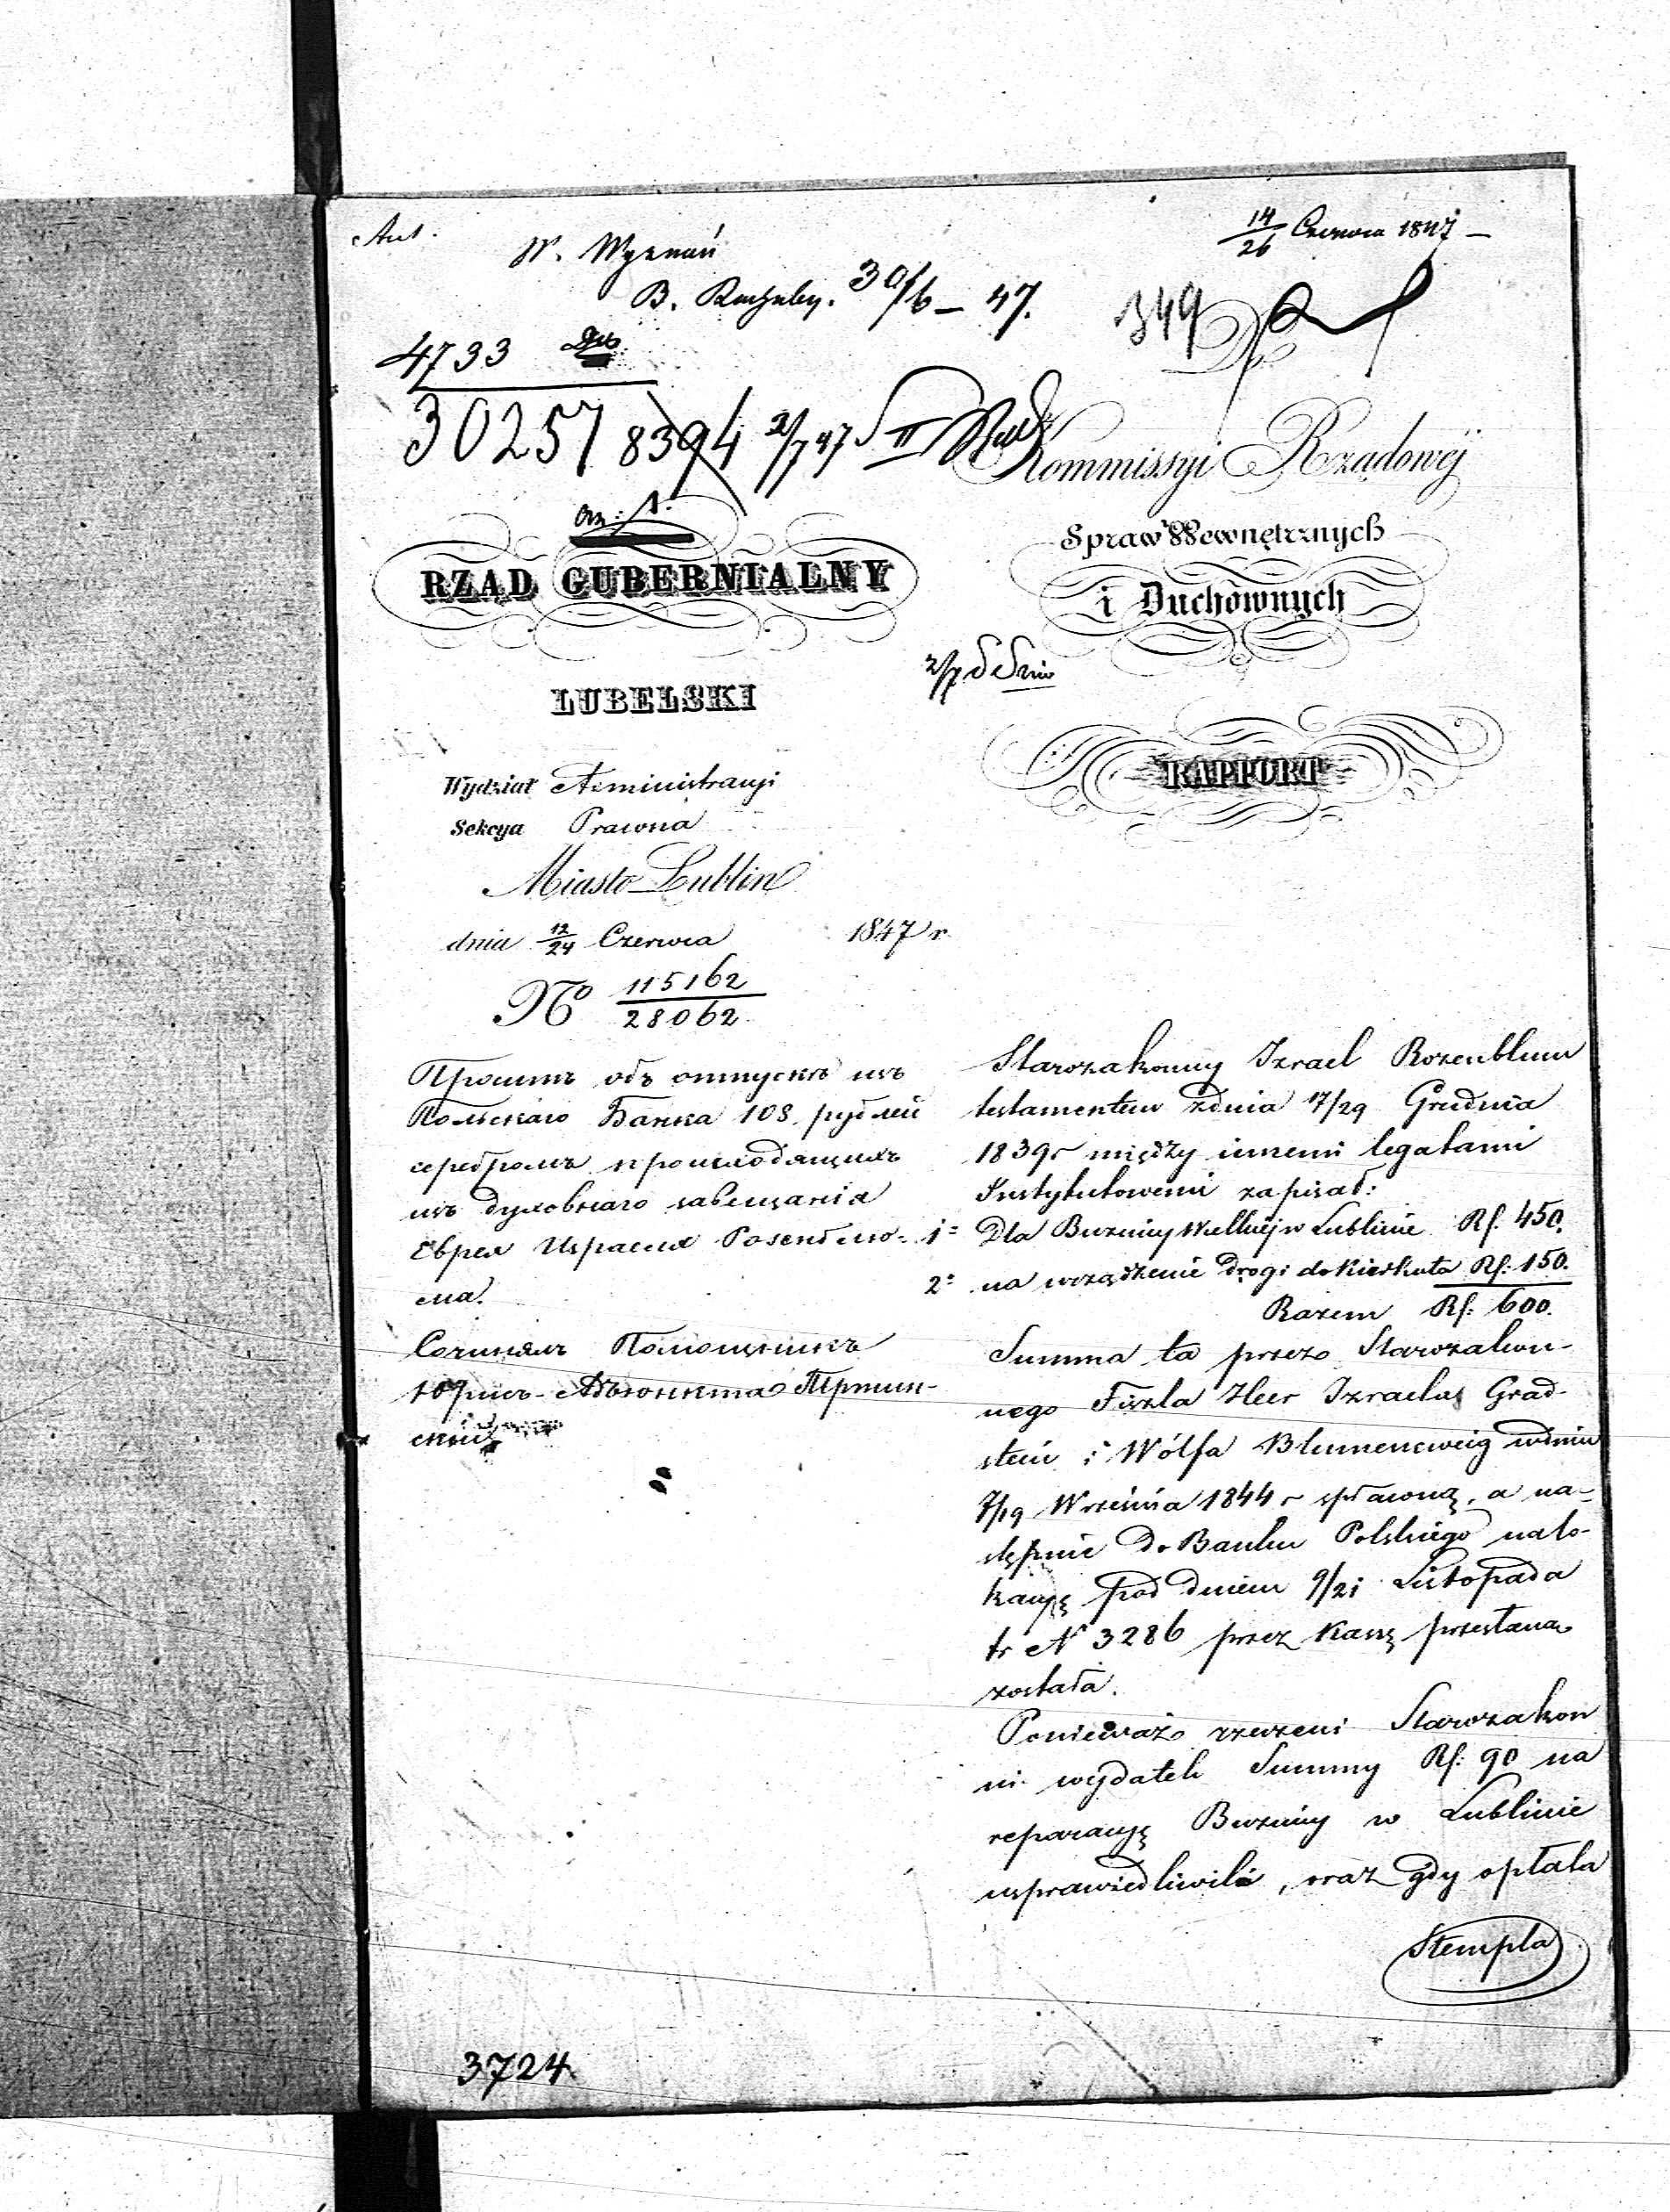 Aus.
W. Wyznań
B. Rachuby. 30/6 – 47.
14/26 Czerwca 1847 –
349
Do
4733
30257 8394 2/7 47 S II
Kommissyi Rządowéj
Spraw Wewnętrznych
i Duchownych
RZĄD GUBERNIALNY
LUBELSKI
2/7
RAPPORT
Wydział Administracyi
Sekcya Prawna
Miasto Lublin
dnia 12/24 Czerwca 1847 r
No 115162/28062
Проситъ объ отпускѣ изъ
Польскаго Банка 108 рублей
серебромъ происходящихъ
изъ духовнаго завещанія
Еврея Израеля Розенблю-
ма.
Сочинялъ Помощникъ
Юрис-Адъюнкта
Starozakonny Izrael Rozenblum
testamentem zdnia 17/29 Grudnia
1839 r między innemi legatami
Instytutowemi zapisał:
1o Dla Buznicy Wielkiej w Lublinie Rs. 450.
2o na urządzenie drogi do Kierkuta Rs: 150.
Razem Rs: 600.
Summa ta przez Starozakon-
nego Fiszla Heer Izraela Grad-
stein i Wólfa Blumencweig w dniu
7/19 Września 1844 r spłaconą, a na-
stępnie do Banku Polskiego na lo-
kacyę pod dniem 9/21 Listopada
tr N 3286 przez Kassę przesłana
została.
Ponieważ rzeczeni Starozakon
ni wydatek Summy Rs: 90 na
reparacyę Buznicy w Lublinie
usprawiedliwili, oraz gdy opłata
Stempla
3724